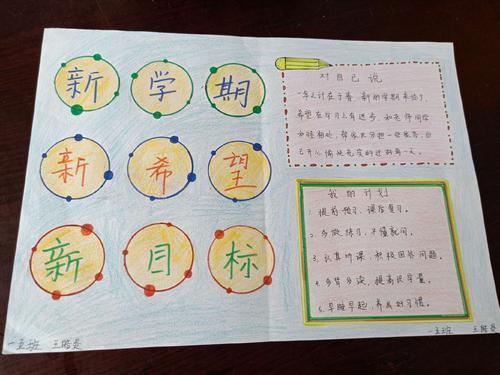 新学期
新希望
新目标
对自己说
一年之计在于春,新的学期来临了,
希望在学习上有进步,和老师同学
和睦相处,帮家长分担一些家务,自
己开心愉快充实的过好每一天。
我的计划
1.提前预习,课后复习。
2.多做练习,不懂就问。
3.认真听课,积极回答问题。
4.多背多读,提高识字量。
5.早睡早起,养成好习惯。
一五班 王皓
一五班 王皓